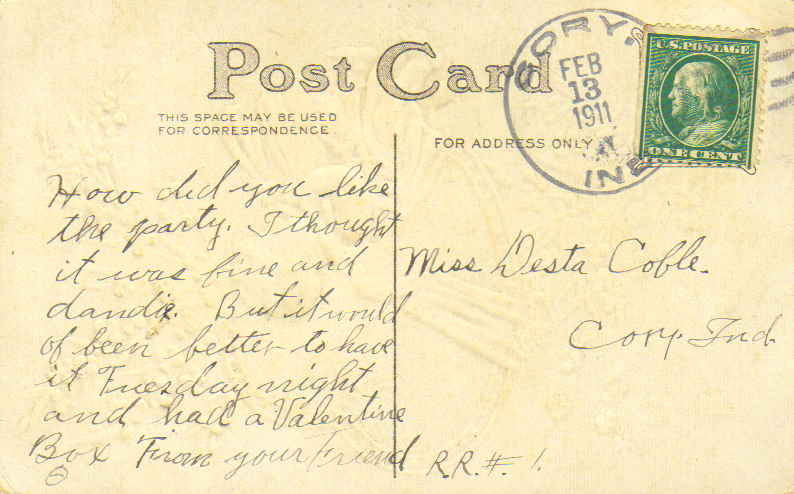 Post Card
THIS SPACE MAY BE USED
FOR CORRESPONDENCE
FOR ADDRESS ONLY
CORY,
FEB
13
1911
IND
U.S. POSTAGE
ONE CENT
How did you like
the party. I thought
it was fine and
dandie. But it would
of been better to have
it Tuesday night
and had a Valentine
Box From your Friend
Miss Desta Coble.
Cory. Ind.
R.R.#. 1.